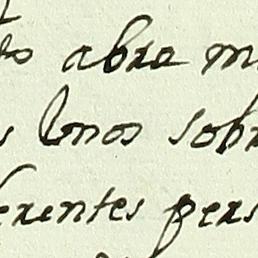 to abra m
s Unos sobr
erentes pers